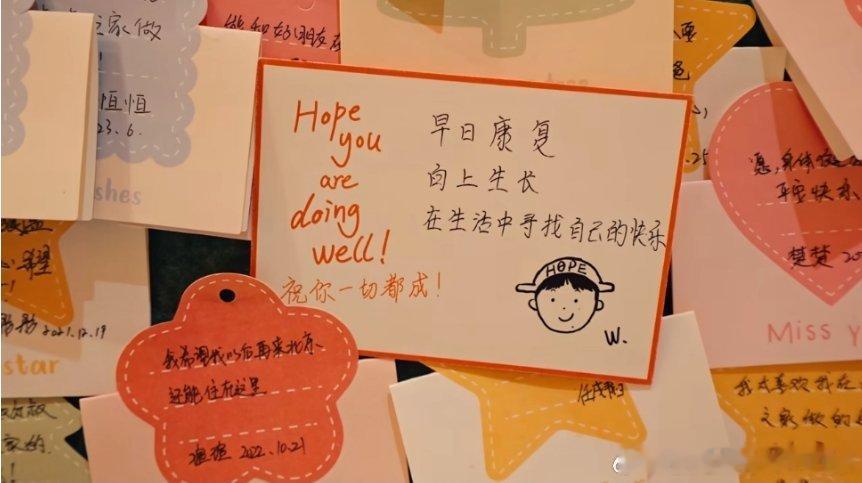 家做
恒恒
23.6.
shes
能和好朋友在
Hope
you
are
doing
well!
祝你一切都成！
早日康复
向上生长
在生活中寻找自己的快乐
HOPE
W.
.25
愿,身体
平安快乐
楚楚 20
Miss y
希望
2021.12.19
star
我希望我以后再来北京、
还能住在这里
2022.10.21
我太喜欢我在
家做的